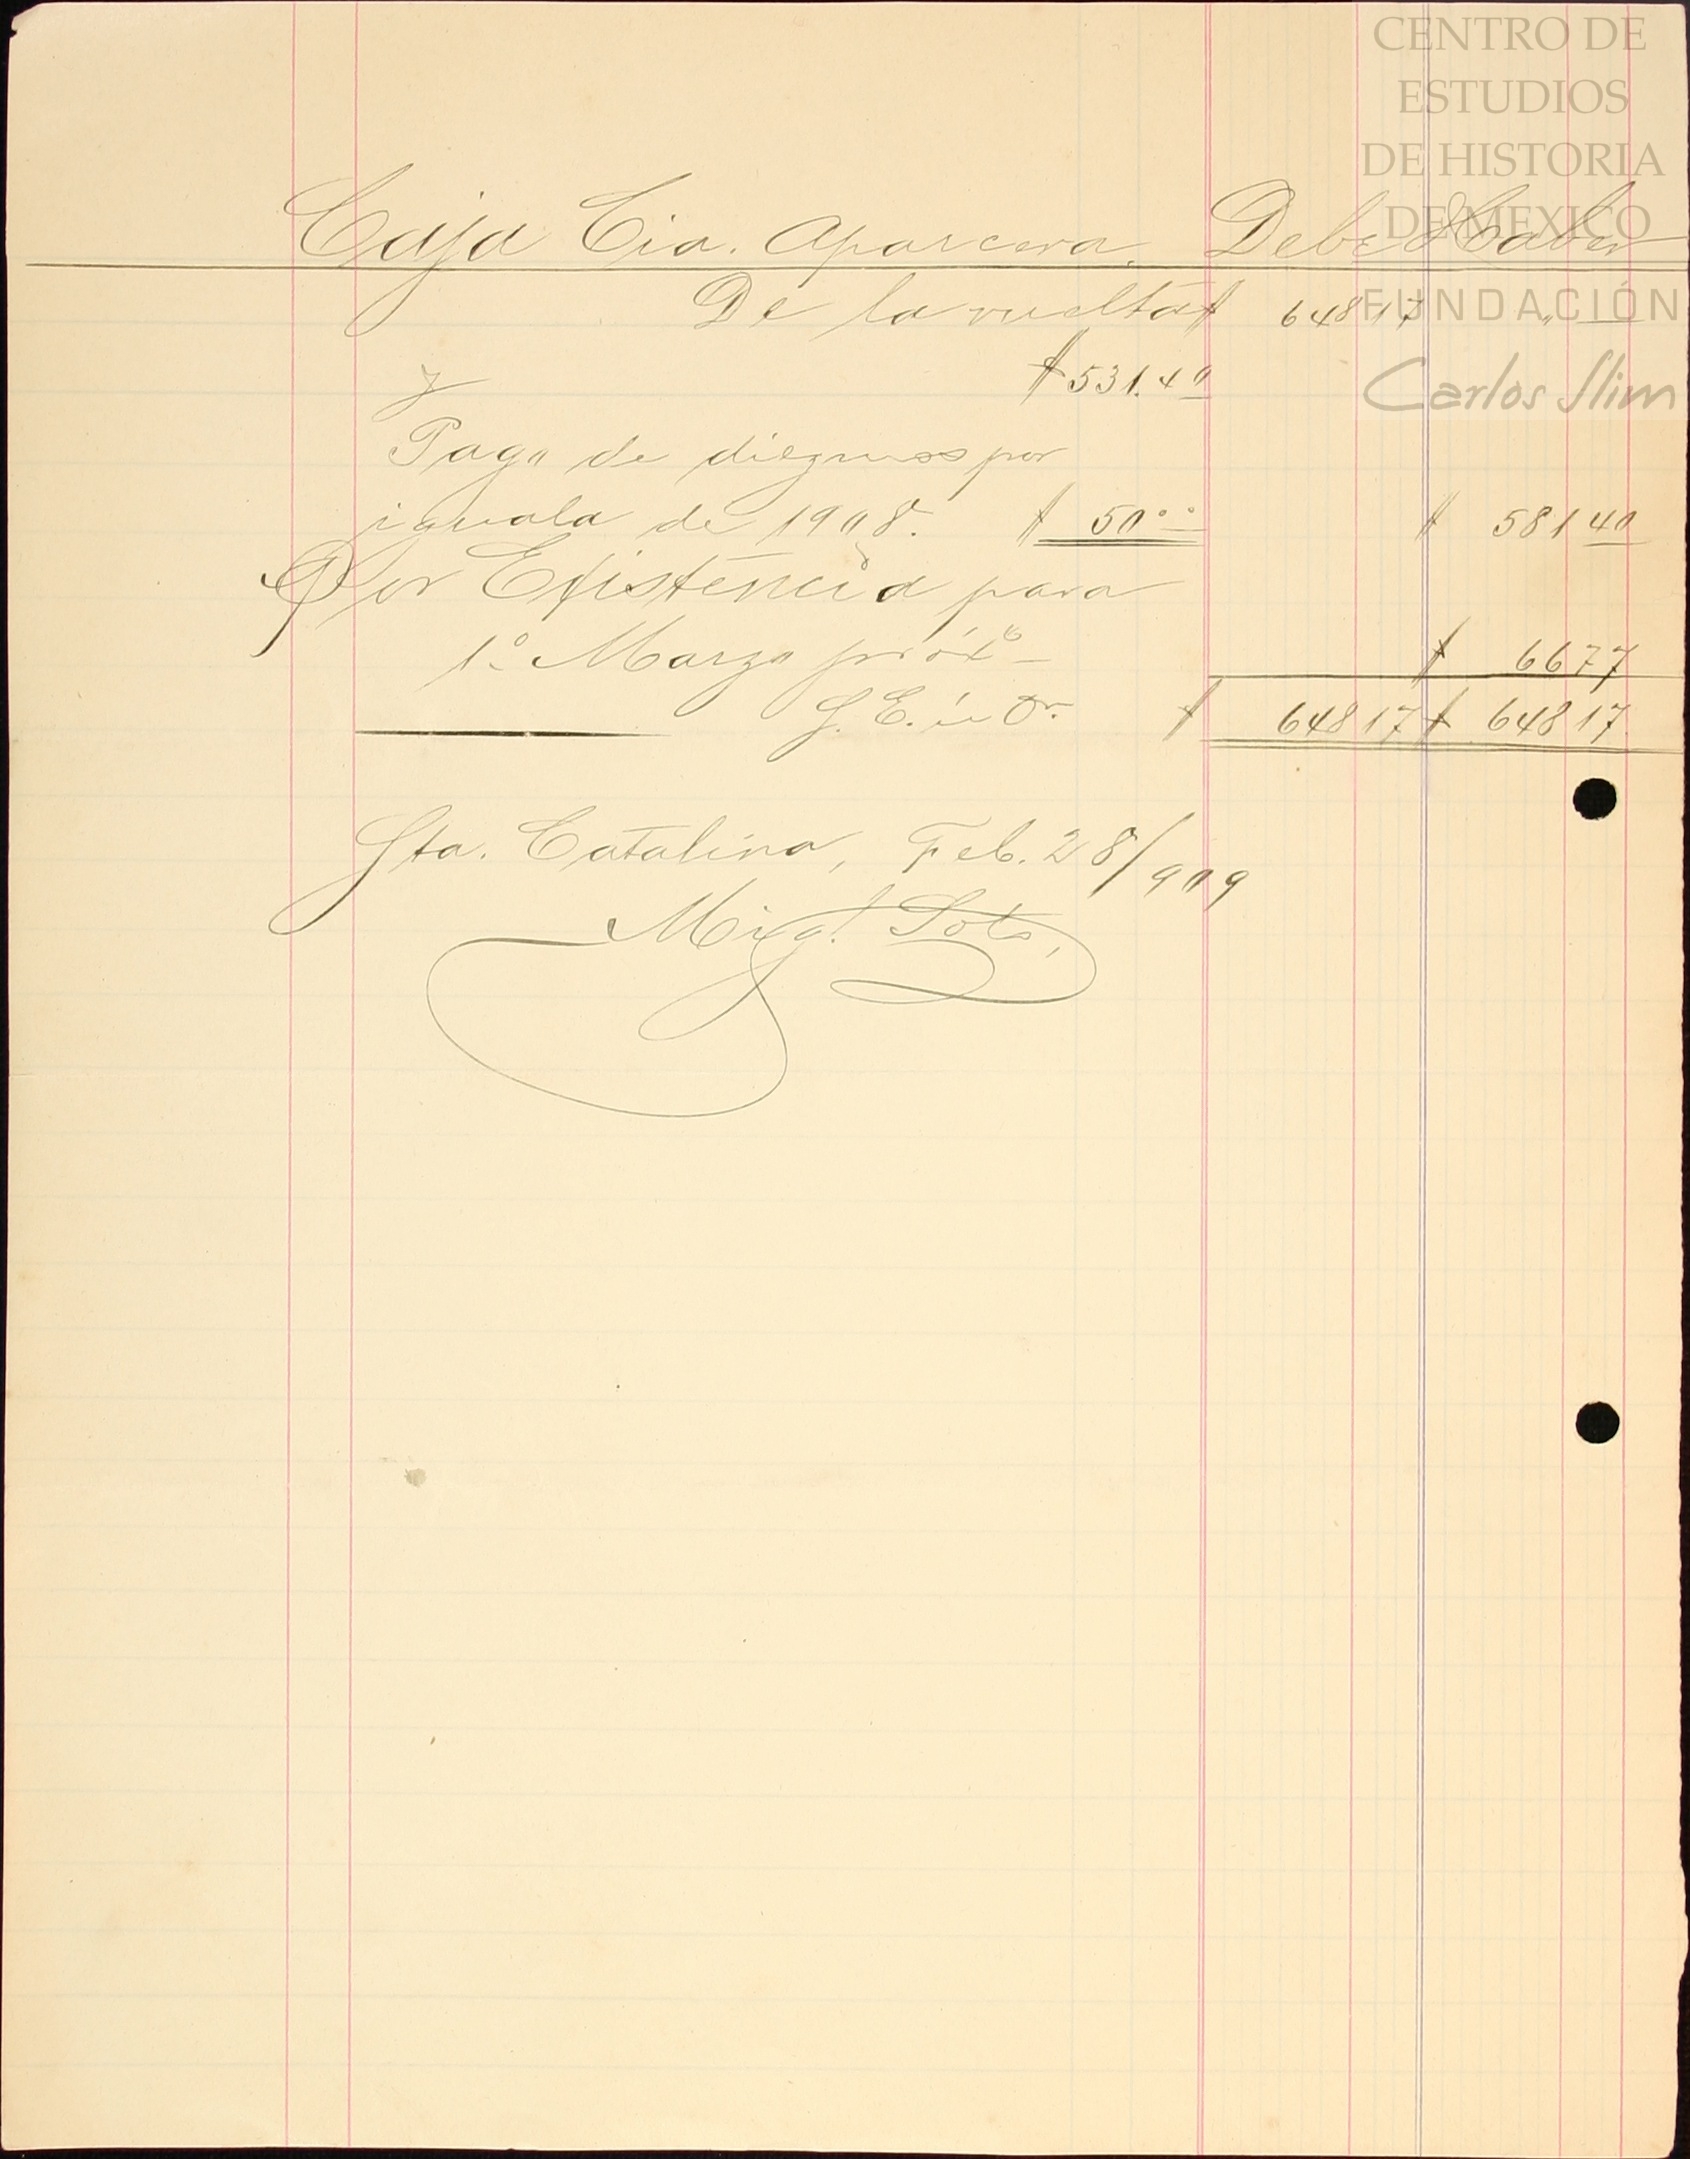 CENTRO DE
ESTUDIOS
DE HISTORIA
DE MEXICO
FUNDACIÓN
Carlos Slim
Caja Cia. Aparcera. Debe Haber
De la vuelta $ 648 17 "
y $ 531.40
Pago de diezmos por
iguala de 1908. $ 50.oo $ 581 40
Por Existencia para
1o. Marzo próxo $ 66 77
S. E. ú O. $ 648 17 $ 648 17
Sta. Catalina, Feb. 28/909
Migl. Soto,